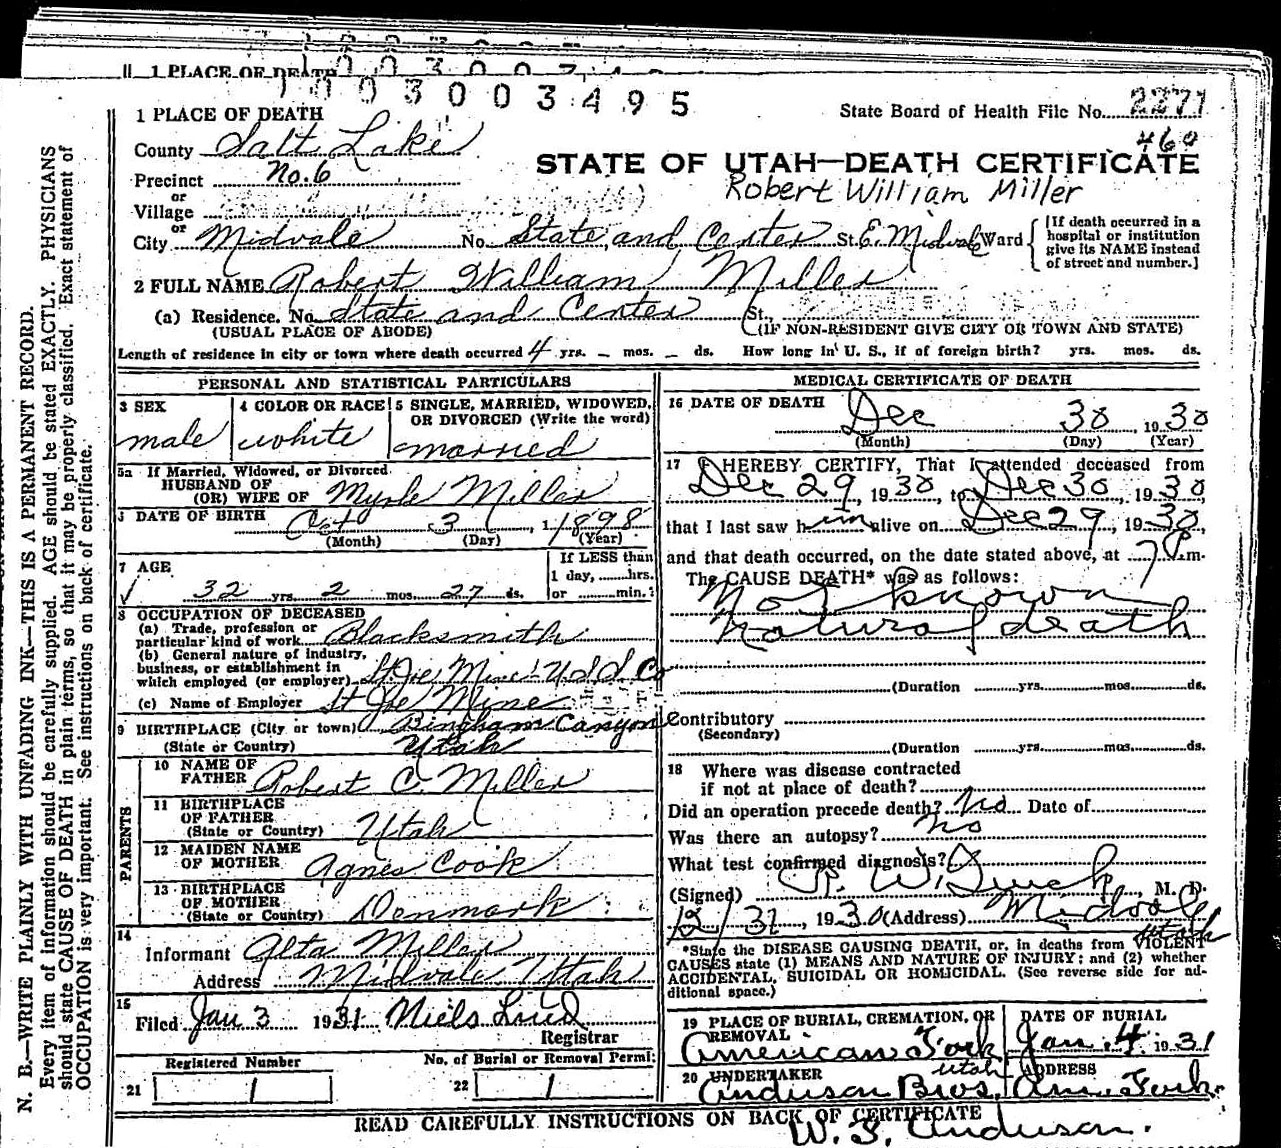 1 PLACE OF DEATH
1003003495
1 PLACE OF DEATH
State Board of Health File No. 2271
460
County Salt Lake
STATE OF UTAH—DEATH CERTIFICATE
Precinct No. 6
Robert William Miller
or
Village
or
City Midvale No. State and Center St. E. Midvale Ward
[If death occurred in a
hospital or institution
give its NAME instead
of street and number.]
2 FULL NAME Robert William Miller
(a) Residence. No. State and Center St.,
(USUAL PLACE OF ABODE) (IF NON-RESIDENT GIVE CITY OR TOWN AND STATE)
Length of residence in city or town where death occurred 4 yrs. – mos. – ds. How long in U. S., if of foreign birth? yrs. mos. ds.
PERSONAL AND STATISTICAL PARTICULARS
3 SEX
male
4 COLOR OR RACE
white
5 SINGLE, MARRIED, WIDOWED,
OR DIVORCED (Write the word)
married
5a If Married, Widowed, or Divorced
HUSBAND OF
(OR) WIFE OF Myrle Miller
DATE OF BIRTH Oct 3, 1898
(Month) (Day) (Year)
7 AGE
32 yrs. 2 mos. 27 ds.
If LESS than
1 day, ......hrs.
or ......min.?
8 OCCUPATION OF DECEASED
(a) Trade, profession or
particular kind of work Blacksmith
(b) General nature of industry,
business, or establishment in
which employed (or employer) St Joe Mine
(c) Name of Employer St Joe Mine
9 BIRTHPLACE (City or town) Bingham Canyon
(State or Country) Utah
PARENTS
10 NAME OF
FATHER Robert C. Miller
11 BIRTHPLACE
OF FATHER
(State or Country) Utah
12 MAIDEN NAME
OF MOTHER Agnes Cook
13 BIRTHPLACE
OF MOTHER
(State or Country) Denmark
14
Informant Alta Miller
Address Midvale Utah
15
Filed Jan 3 1931 Niels Lind
Registrar
Registered Number
21 1
No. of Burial or Removal Permit
22 1
MEDICAL CERTIFICATE OF DEATH
16 DATE OF DEATH Dec 30 1930
(Month) (Day) (Year)
17 I HEREBY CERTIFY, That I attended deceased from
Dec 29, 1930, to Dec 30, 1930,
that I last saw him alive on Dec 29, 1930
and that death occurred, on the date stated above, at 7 P.m.
The CAUSE DEATH* was as follows:
Not known
Natural death
(Duration ......yrs......mos......ds.
Contributory
(Secondary)
(Duration ......yrs......mos......ds.
18 Where was disease contracted
if not at place of death?
Did an operation precede death? No Date of
Was there an autopsy? no
What test confirmed diagnosis?
(Signed) M. D.
12/31, 1930 (Address) Midvale
Utah
*State the DISEASE CAUSING DEATH, or, in deaths from VIOLENT
CAUSES state (1) MEANS AND NATURE OF INJURY; and (2) whether
ACCIDENTAL, SUICIDAL OR HOMICIDAL. (See reverse side for ad-
ditional space.)
19 PLACE OF BURIAL, CREMATION, OR
REMOVAL
American Fork
Utah
DATE OF BURIAL
Jan. 4, 1931
20 UNDERTAKER
Anderson Bros.
ADDRESS
Am. Fork.
READ CAREFULLY INSTRUCTIONS ON BACK OF CERTIFICATE
W. S. Anderson.
N. B.—WRITE PLAINLY WITH UNFADING INK—THIS IS A PERMANENT RECORD.
Every item of information should be carefully supplied. AGE should be stated EXACTLY. PHYSICIANS
should state CAUSE OF DEATH in plain terms, so that it may be properly classified. Exact statement of
OCCUPATION is very important. See instructions on back of certificate.